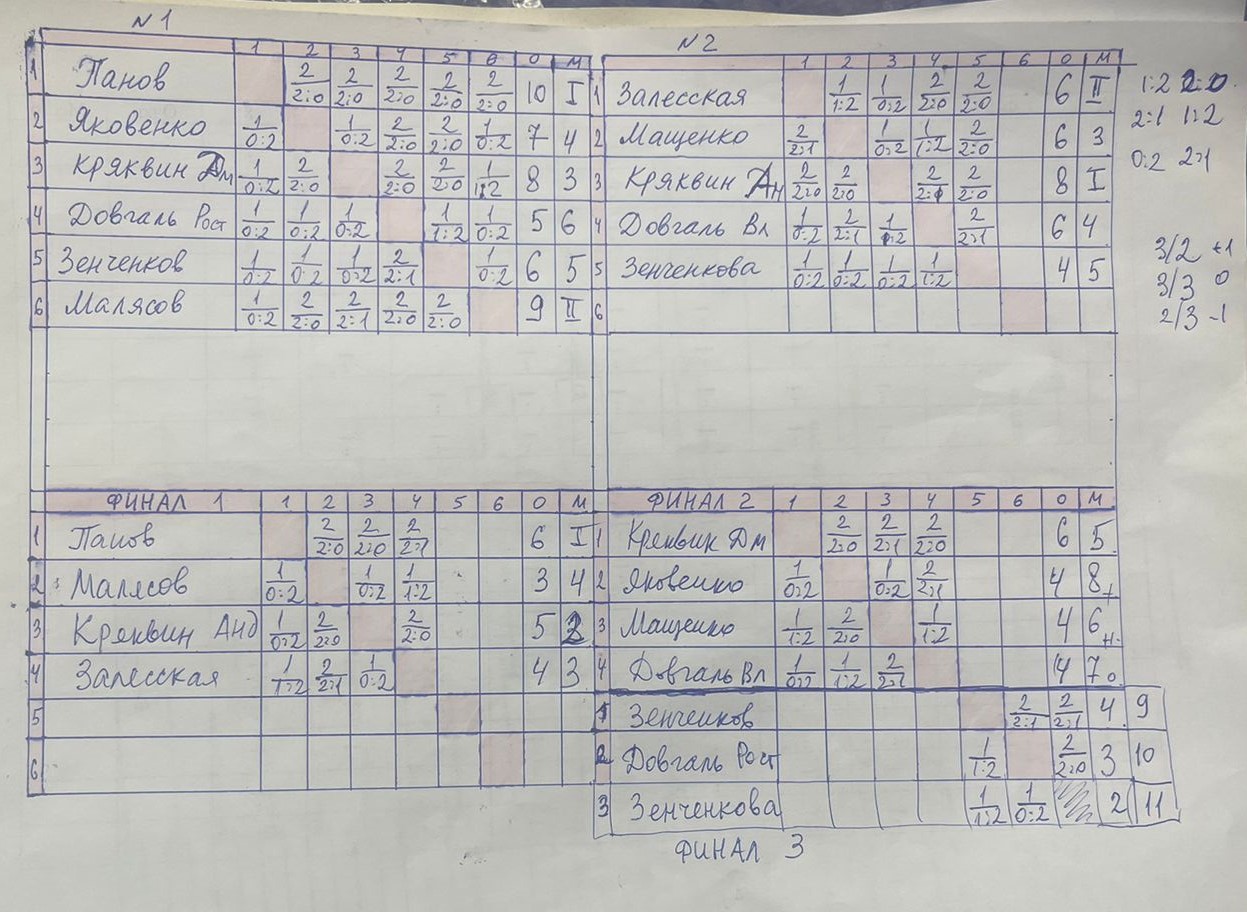 N1
1 2 3 4 5 6 О М
1 Панов 2/2:0 2/2:0 2/2:0 2/2:0 2/2:0 10 I
2 Яковенко 1/0:2 1/0:2 2/2:0 2/2:0 1/0:2 7 4
3 Кряквин Дм 1/0:2 2/2:0 2/2:0 2/2:0 1/1:2 8 3
4 Довгаль Рост 1/0:2 1/0:2 1/0:2 1/1:2 1/0:2 5 6
5 Зенченков 1/0:2 1/0:2 1/0:2 2/2:1 1/0:2 6 5
6 Малясов 1/0:2 2/2:0 2/2:1 2/2:0 2/2:0 9 II
N2
1 2 3 4 5 6 О М
1 Залесская 1/1:2 1/0:2 2/2:0 2/2:0 6 II
2 Мащенко 2/2:1 1/0:2 1/1:2 2/2:0 6 3
3 Кряквин Ан 2/2:0 2/2:0 2/2:0 2/2:0 8 I
4 Довгаль Вл 1/0:2 2/2:1 1/0:2 2/2:1 6 4
5 Зенченкова 1/0:2 1/0:2 1/0:2 1/1:2 4 5
6
1:2 2:0
2:1 1:2
0:2 2:1
3/2 +1
3/3 0
2/3 -1
ФИНАЛ 1 1 2 3 4 5 6 О М
1 Панов 2/2:0 2/2:0 2/2:1 6 I
2 Малясов 1/0:2 1/0:2 1/1:2 3 4
3 Кряквин Анд 1/0:2 2/2:0 2/2:0 5 2
4 Залесская 1/1:2 2/2:1 1/0:2 4 3
5
6
ФИНАЛ 2 1 2 3 4 5 6 О М
1 Кряквин Дм 2/2:0 2/2:1 2/2:0 6 5
2 Яковенко 1/0:2 1/0:2 2/2:1 4 8
3 Мащенко 1/1:2 2/2:0 1/1:2 4 6
4 Довгаль Вл 1/0:2 1/1:2 2/2:1 4 7
1 Зенченков 2/2:1 2/2:1 4 9
2 Довгаль Рост 1/1:2 2/2:0 3 10
3 Зенченкова 1/1:2 1/0:2 2 11
ФИНАЛ 3